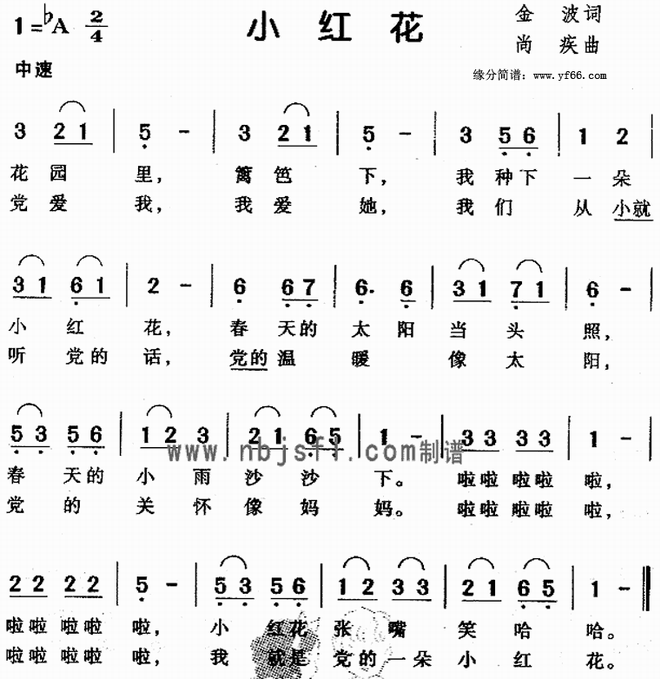 1=♭A 2/4 小红花 金波词
中速 尚疾曲
缘分简谱：www.yf66.com
3 2 1 | 5 - | 3 2 1 | 5 - | 3 5 6 | 1 2 |
花园里，篱笆下，我种下一朵
党爱我，我爱她，我们从小就
3 1 6 1 | 2 - | 6 6 7 | 6· 6 | 3 1 7 1 | 6 - |
小红花，春天的太阳当头照，
听党的话，党的温暖像太阳，
5 3 5 6 | 1 2 3 | 2 1 6 5 | 1 - | 3 3 3 3 | 1 - |
www.nbjsfl.com制谱
春天的小雨沙沙下。啦啦啦啦啦，
党的关怀像妈妈。啦啦啦啦啦，
2 2 2 2 | 5 - | 5 3 5 6 | 1 2 3 3 | 2 1 6 5 | 1 - ‖
啦啦啦啦啦，小红花张嘴笑哈哈。
啦啦啦啦啦，我就是党的一朵小红花。